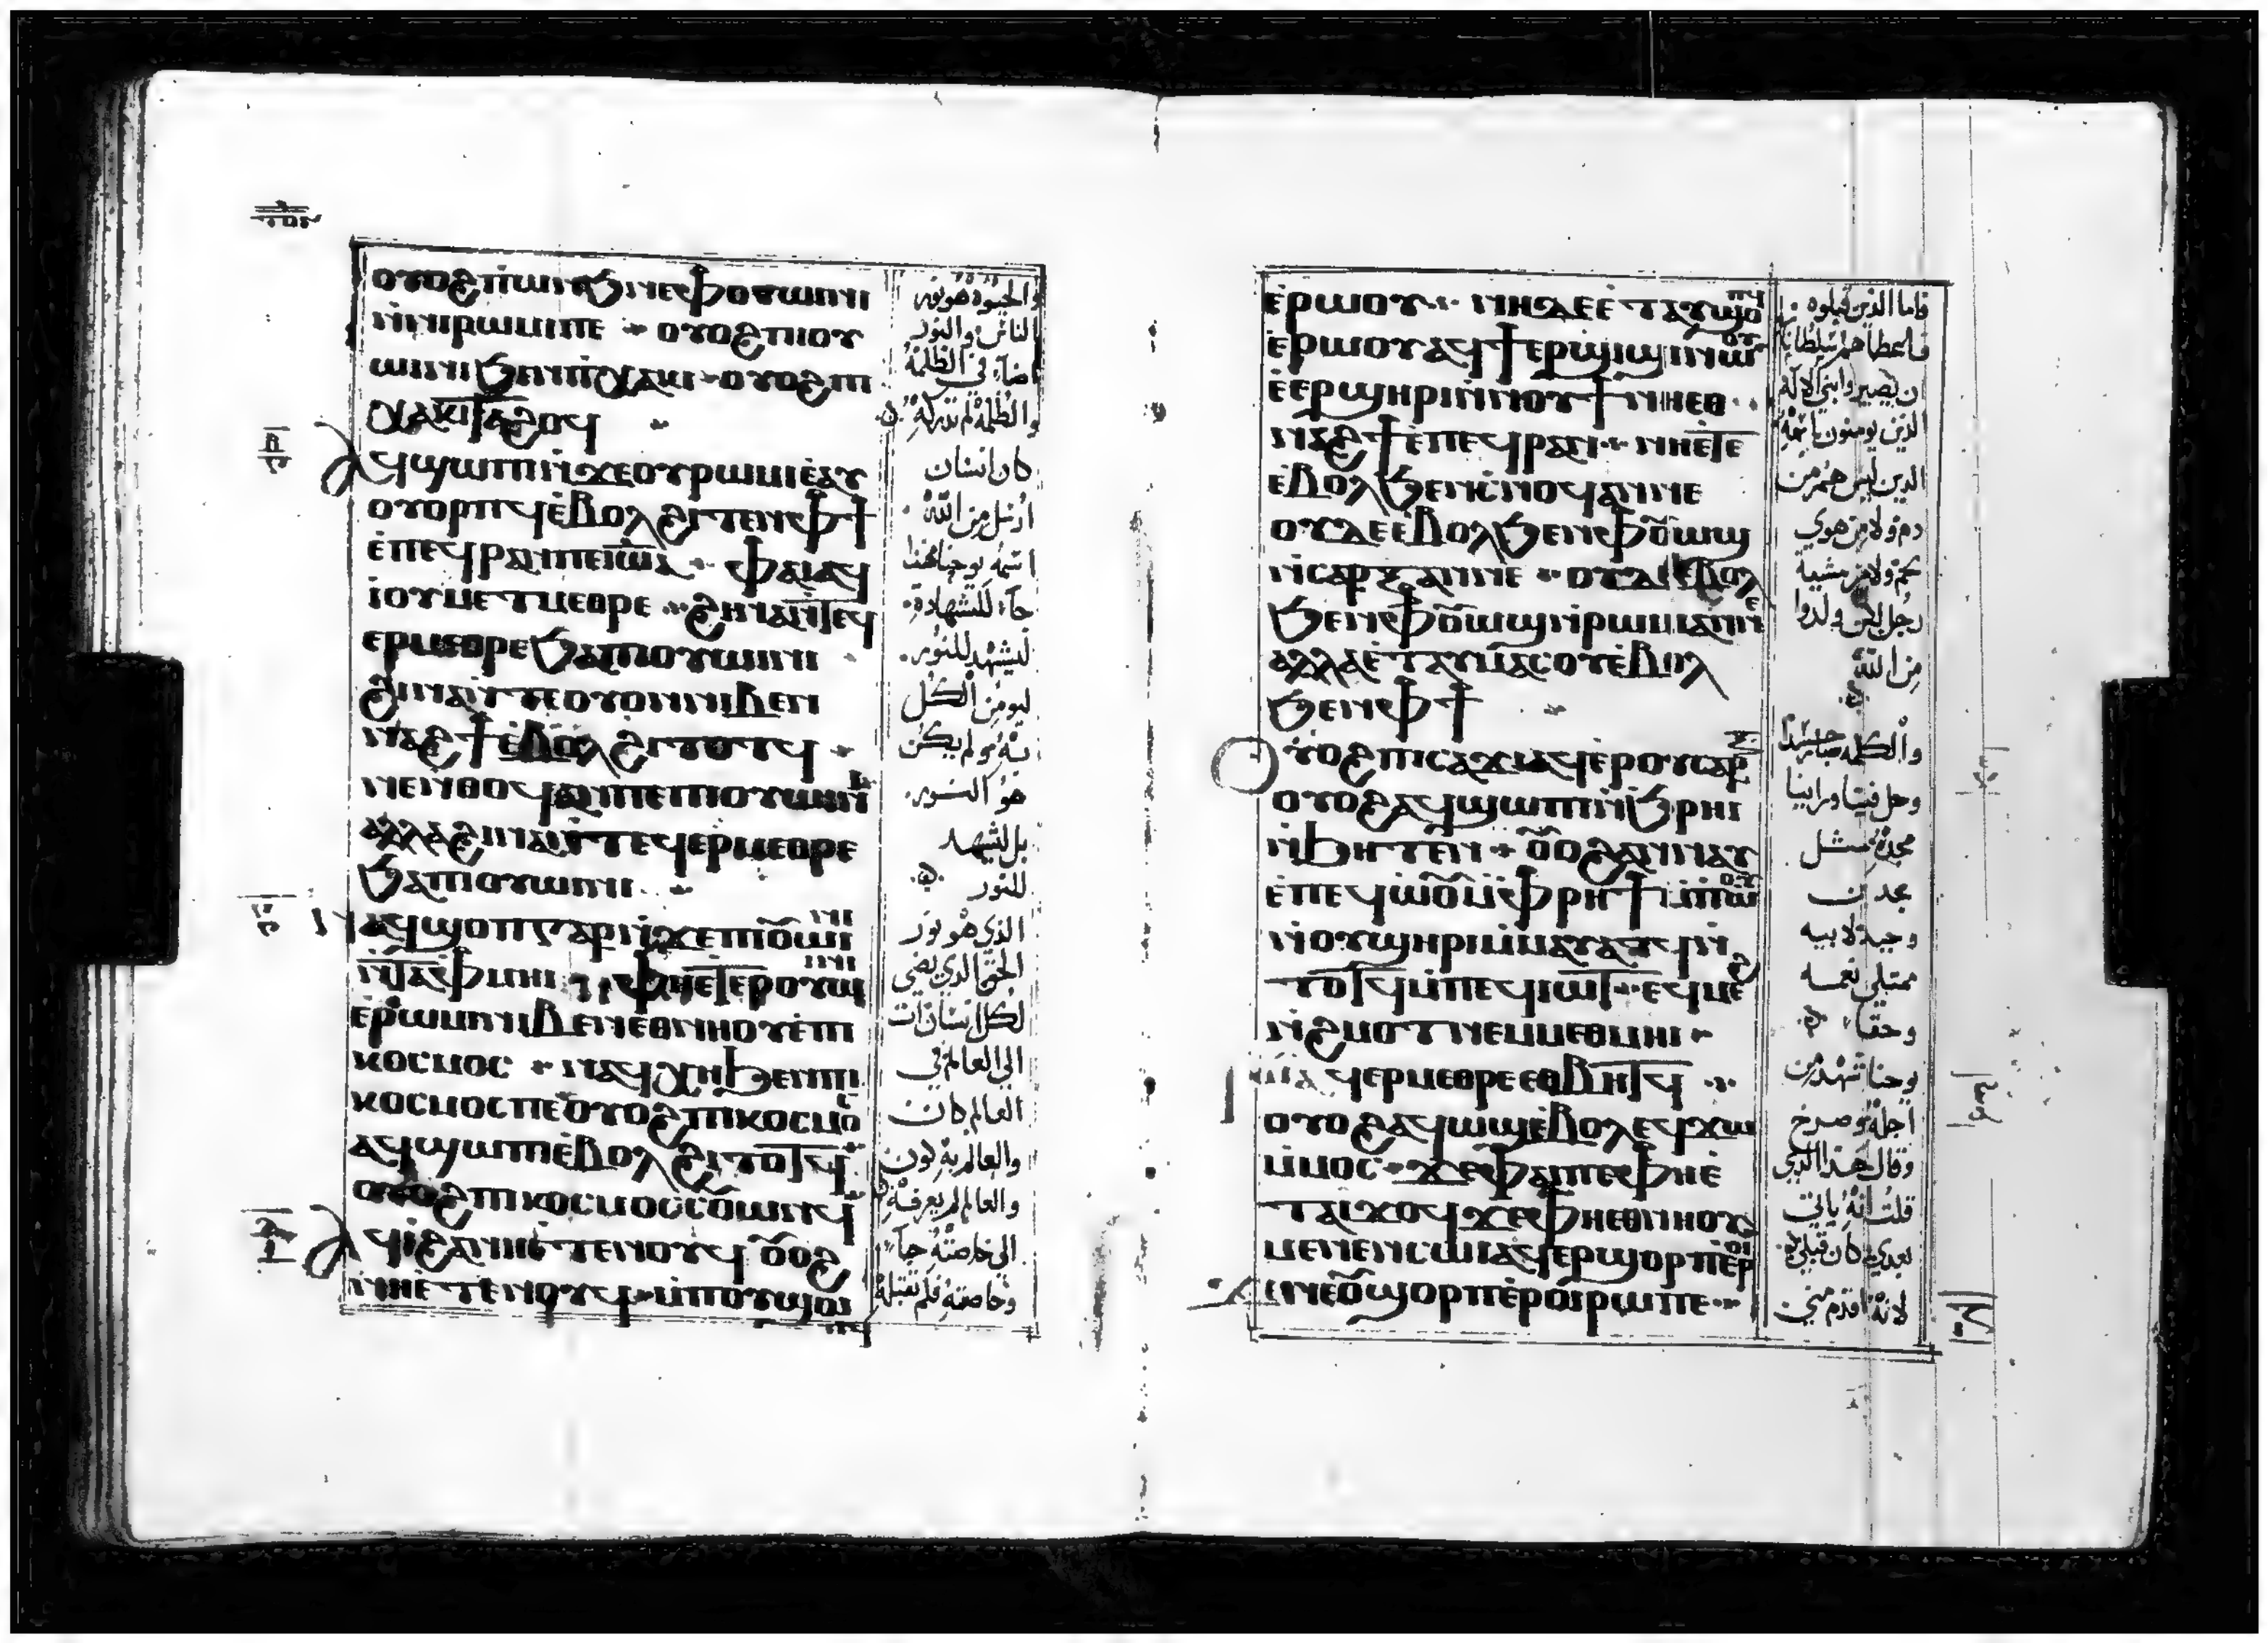 ⲟⲩⲟϩ ⲡⲱⲛϧ ⲛⲉ ⲫⲟⲩⲱⲓⲛⲓ
ⲛ̀ⲛⲓⲣⲱⲙⲓ ⲡⲉ ⲟⲩⲟϩ ⲡⲓⲟⲩ
ⲱⲓⲛⲓ ϧⲉⲛ ⲡⲭⲁⲕⲓ ⲟⲩⲟϩ ⲡ
ⲭⲁⲕⲓ ⲧⲁϩⲟϥ
ⲁϥϣⲱⲡⲓ ⲛ̀ϫⲉ ⲟⲩⲣⲱⲙⲓ ⲉ̀ⲁⲩ
ⲟⲩⲟⲣⲡϥ ⲉ̀ⲃⲟⲗ ϩⲓⲧⲉⲛ ⲫϯ
ⲉ̀ⲡⲉϥⲣⲁⲛ ⲡⲉ ⲓⲱⲁ ⲫⲁⲓ ⲁϥ
ⲓ̀ ⲟⲩⲙⲉⲧⲙⲉⲑⲣⲉ ϩⲓⲛⲁ ⲛ̀ⲧⲉϥ
ⲉⲣⲙⲉⲑⲣⲉ ϧⲁ ⲡⲓⲟⲩⲱⲓⲛⲓ
ϩⲓⲛⲁ ⲛ̀ⲧⲉ ⲟⲩⲟⲛ ⲛⲓⲃⲉⲛ
ⲛⲁϩϯ ⲉ̀ⲃⲟⲗ ϩⲓⲧⲟⲧϥ
ⲛⲉ ⲛ̀ⲑⲟϥ ⲁⲛ ⲡⲉ ⲡⲓⲟⲩⲱⲓⲛⲓ
ⲁⲗⲗⲁ ϩⲓⲛⲁ ⲛ̀ⲧⲉϥⲉⲣⲙⲉⲑⲣⲉ
ϧⲁ ⲡⲓⲟⲩⲱⲓⲛⲓ
ⲛⲁϥϣⲟⲡ ⲅⲁⲣ ⲛ̀ϫⲉ ⲡⲓⲟⲩⲱⲓⲛⲓ
ⲛ̀ⲧⲁⲫⲙⲏⲓ ⲫⲏ ⲉⲧⲉⲣⲟⲩⲱⲓⲛⲓ
ⲉ̀ⲣⲱⲙⲓ ⲛⲓⲃⲉⲛ ⲉⲑⲛⲏⲟⲩ ⲉ̀ⲡ
ⲕⲟⲥⲙⲟⲥ ⲛⲁϥⲭⲏ ϧⲉⲛ ⲡⲓ
ⲕⲟⲥⲙⲟⲥ ⲡⲉ ⲟⲩⲟϩ ⲡⲓⲕⲟⲥⲙⲟⲥ
ⲁϥϣⲱⲡⲓ ⲉ̀ⲃⲟⲗ ϩⲓⲧⲟⲧϥ
ⲟⲩⲟϩ ⲡⲓⲕⲟⲥⲙⲟⲥ ⲥⲟⲩⲱⲛϥ
ⲁϥⲓ̀ ϩⲁ ⲛⲏ ⲉ̀ⲧⲉ ⲛⲟⲩϥ ⲟⲩⲟϩ
ⲛⲏ ⲉ̀ⲧⲉ ⲛⲟⲩϥ ⲙ̀ⲡⲟⲩϣⲟⲡϥ
والحيوه هو نور
الناس والنور
اضاء في الظلمة
والظلمة لم تدركه
كان انسان
ارسل من الله
اسمه يوحنا هذا
جاء للشهادة
ليشهد للنور
ليومن الكل
به ولم يكن
هو النور
بل ليشهد
للنور
الذي هو نور
الحق الذي يضي
لكل انسان ات
الى العالم في
العالم كان
والعالم به كون
والعالم لم يعرفه
الى خاصته جاء
وخاصته فلم تقبله
ⲉ̀ⲣⲱⲟⲩ ⲛⲏ ⲇⲉ ⲉ̀ⲧⲁⲩϣⲟⲡϥ
ⲉ̀ⲣⲱⲟⲩ ⲁϥϯⲉⲣϣⲓϣⲓ ⲛⲱⲟⲩ
ⲉ̀ⲉⲣϣⲏⲣⲓ ⲛ̀ⲛⲟⲩϯ ⲛⲏ ⲉⲑ
ⲛⲁϩϯ ⲉ̀ⲡⲉϥⲣⲁⲛ ⲛⲏ ⲉ̀ⲧⲉ
ⲉ̀ⲃⲟⲗ ϧⲉⲛ ⲥⲛⲟϥ ⲁⲛ ⲛⲉ
ⲟⲩⲇⲉ ⲉ̀ⲃⲟⲗ ϧⲉⲛ ⲫⲟⲩⲱϣ
ⲛ̀ⲥⲁⲣⲝ ⲁⲛ ⲛⲉ ⲟⲩⲇⲉ ⲉ̀ⲃⲟⲗ
ϧⲉⲛ ⲫⲟⲩⲱϣ ⲛ̀ⲣⲱⲙⲓ ⲁⲛ ⲛⲉ
ⲁⲗⲗⲁ ⲉ̀ⲧⲁⲩⲙⲁⲥⲟⲩ ⲉ̀ⲃⲟⲗ
ϧⲉⲛ ⲫϯ
ⲟⲩⲟϩ ⲡⲓⲥⲁϫⲓ ⲁϥⲉⲣ ⲟⲩⲥⲁⲣⲝ
ⲟⲩⲟϩ ⲁϥϣⲱⲡⲓ ⲛ̀ϧⲣⲏⲓ
ⲛ̀ϧⲏⲧⲉⲛ ⲟⲩⲟϩ ⲁⲛⲛⲁⲩ
ⲉ̀ⲡⲉϥⲱⲟⲩ ⲙ̀ⲫⲣⲏϯ ⲙ̀ⲡⲱⲟⲩ
ⲛ̀ⲟⲩϣⲏⲣⲓ ⲙ̀ⲙⲁⲩⲁⲧϥ ⲛ̀
ⲧⲟⲧϥ ⲙ̀ⲡⲉϥⲓⲱⲧ ⲉϥⲙⲉϩ
ⲛ̀ϩⲙⲟⲧ ⲛⲉⲙ ⲙⲉⲑⲙⲏⲓ
ϥⲉⲣⲙⲉⲑⲣⲉ ⲉⲑⲃⲏⲧϥ
ⲟⲩⲟϩ ⲁϥⲱϣ ⲉ̀ⲃⲟⲗ ⲉϥϫⲱ
ⲙ̀ⲙⲟⲥ ϫⲉ ⲫⲁⲓ ⲡⲉ ⲫⲏ ⲉ̀
ⲧⲁⲓϫⲟϥ ϫⲉ ⲫⲏ ⲉⲑⲛⲏⲟⲩ
ⲙⲉⲛⲉⲛⲥⲱⲓ ⲁϥⲉⲣϣⲟⲣⲡ ⲉ̀ⲣⲟⲓ
ϫⲉ ⲛⲉ ⲟⲩϣⲟⲣⲡ ⲉ̀ⲣⲟⲓ ⲣⲱ ⲡⲉ
فاما الذين قبلوه
فاعطاهم سلطانا
ان يصيروا بني الاله
الذين يومنون باسمه
الذين ليس هم من
دم ولا من هوي
لحم ولا من مشية
رجل لكن ولدوا
من الله
والكلمه صار جسدا
وحل فينا وراينا
مجده مثل
مجد ابن
وحيد لابيه
ممتلي نعمه
وحقا
يوحنا شهد من
اجله وصرخ
وقال هذا الذي
قلت انه ياتي
بعدي كان قبلي
لانه اقدم مني